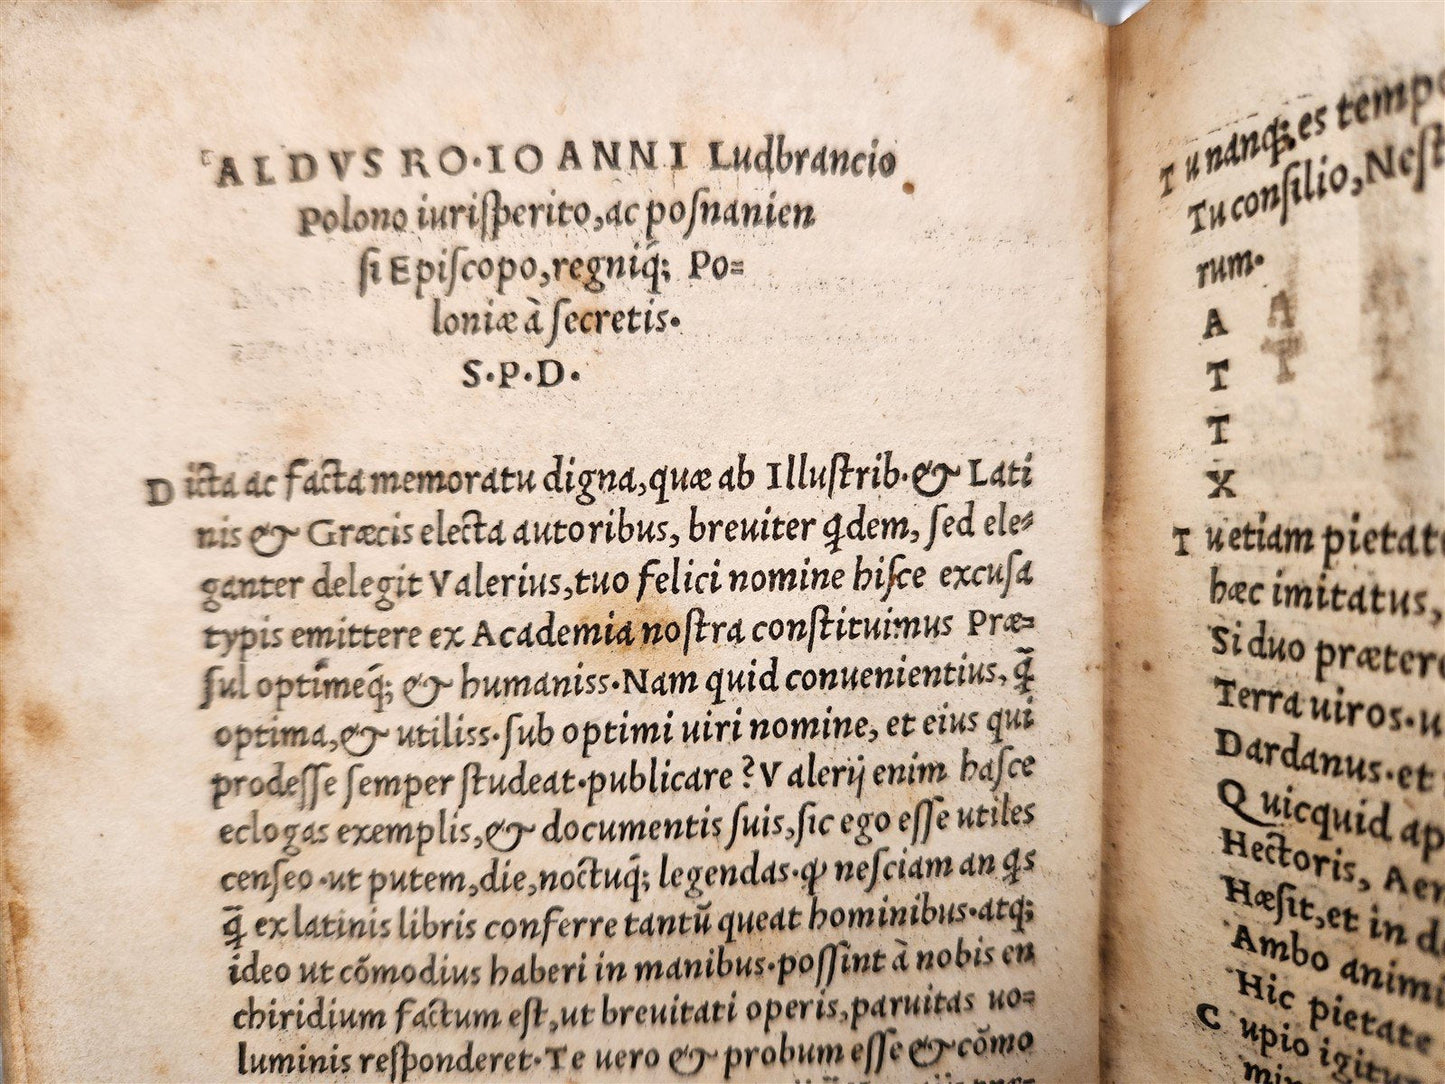 ALDVS RO·IOANNI Ludbrancio
Polono iuriſperito,ac poſnanien
ſi Epiſcopo,regniq́; Po=
loniæ à ſecretis·
S·P·D·
Dicta ac facta memoratu digna,quæ ab Illuſtrib·& Lati
nis & Græcis electa autoribus, breuiter q̃dem, ſed ele=
ganter delegit Valerius,tuo felici nomine hiſce excuſa
typis emittere ex Academia noſtra conſtituimus Præ=
ſul optimeq́; & humaniss·Nam quid conuenientius, q̃
optima,& utiliss·ſub optimi uiri nomine, et eius qui
prodeſſe ſemper ſtudeat·publicare ?Valerij enim haſce
eclogas exemplis,& documentis ſuis,ſic ego eſſe utiles
cenſeo·ut putem,die,noctuq́; legendas·ꝙ neſciam an q̃s
q̃ ex latinis libris conferre tantũ queat hominibus·atq;
ideo ut cõmodius haberi in manibus·poſſint à nobis en
chiridium factum eſt,ut breuitati operis,paruitas uo=
luminis reſponderet·Te uero & probum eſſe & cõmo
Tu nanq; es tempo
Tu conſilio,Neſt
rum·
A
T
T
X
Tu etiam pietat
hæc imitatus,
Si duo præter
Terra uiros·u
Dardanus·et
Quicquid ap
Hectoris, Aen
Hæſit,et in d
Ambo animi
Hic pietate
Cupio igitu